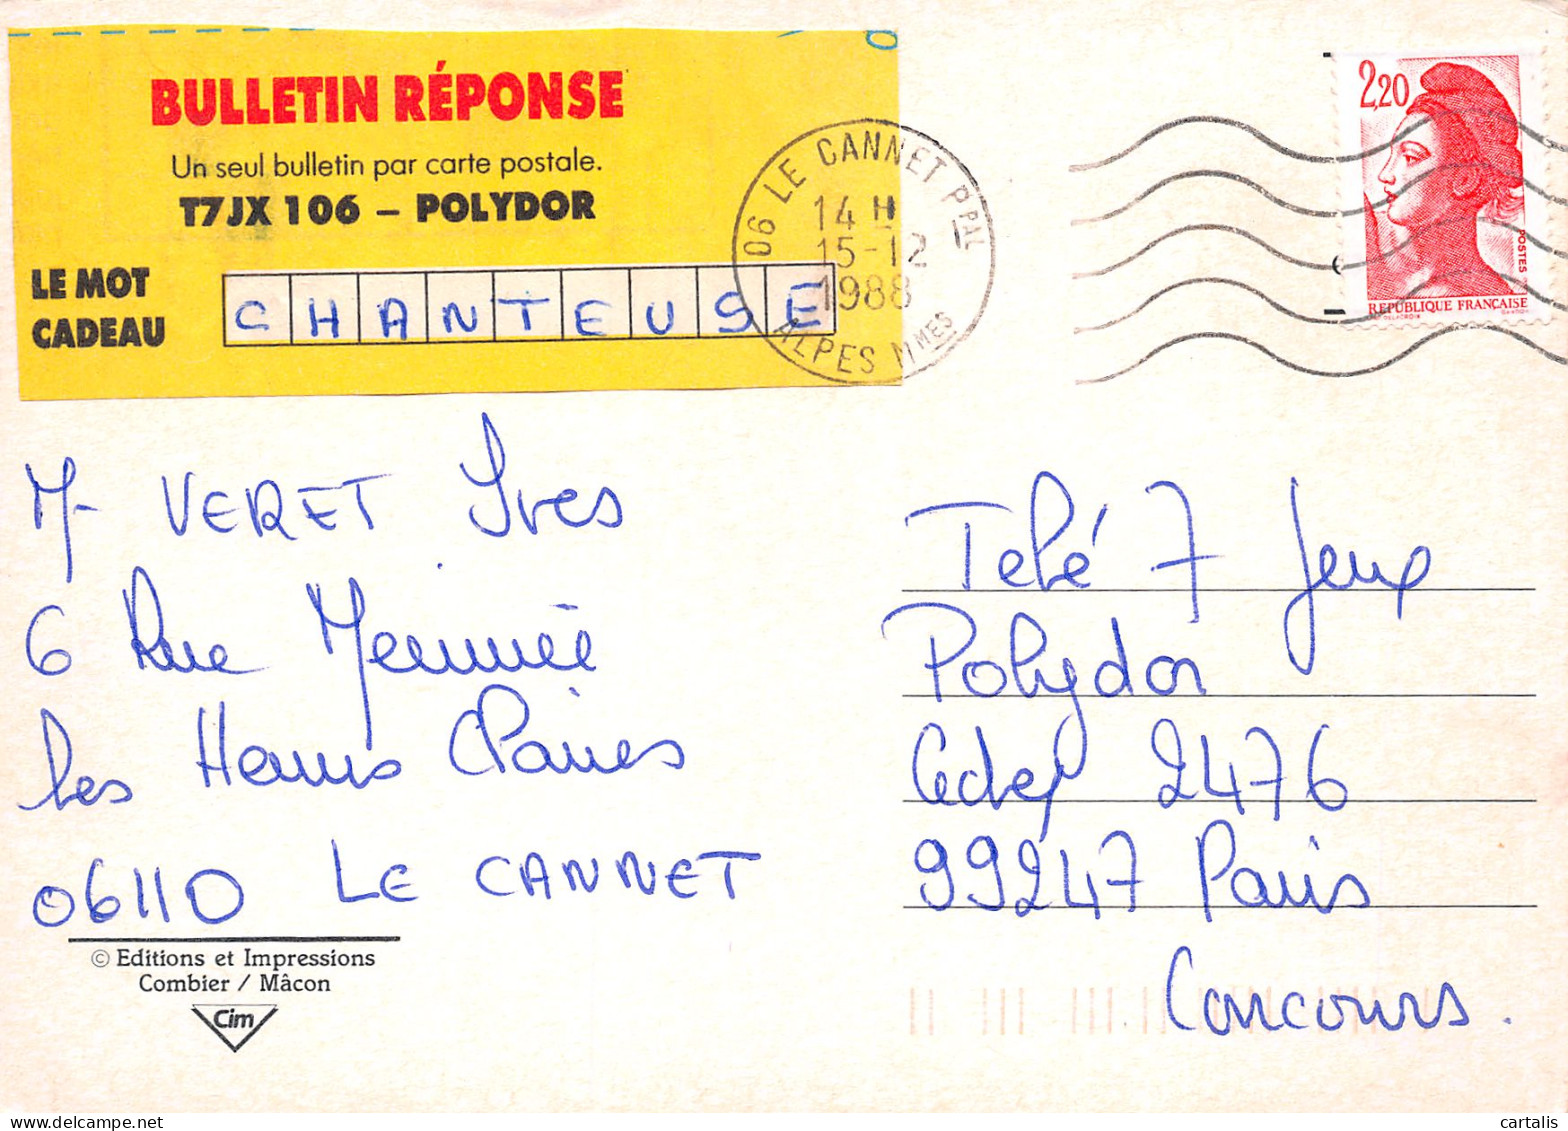 BULLETIN RÉPONSE
Un seul bulletin par carte postale.
T7JX 106 – POLYDOR
LE MOT
CADEAU
CHANTEUSE
06 LE CANNET PPAL
14 H
15-12
1988
ALPES MMES
2,20
POSTES
REPUBLIQUE FRANÇAISE
DELACROIX GANDON
Mr VERET Yves
6 Rue
les Hauts
06110 LE CANNET
© Editions et Impressions
Combier / Mâcon
Cim
Telé 7 Jeux
Polydor
Cedex 2476
99247 Paris
Concours.
cartalis